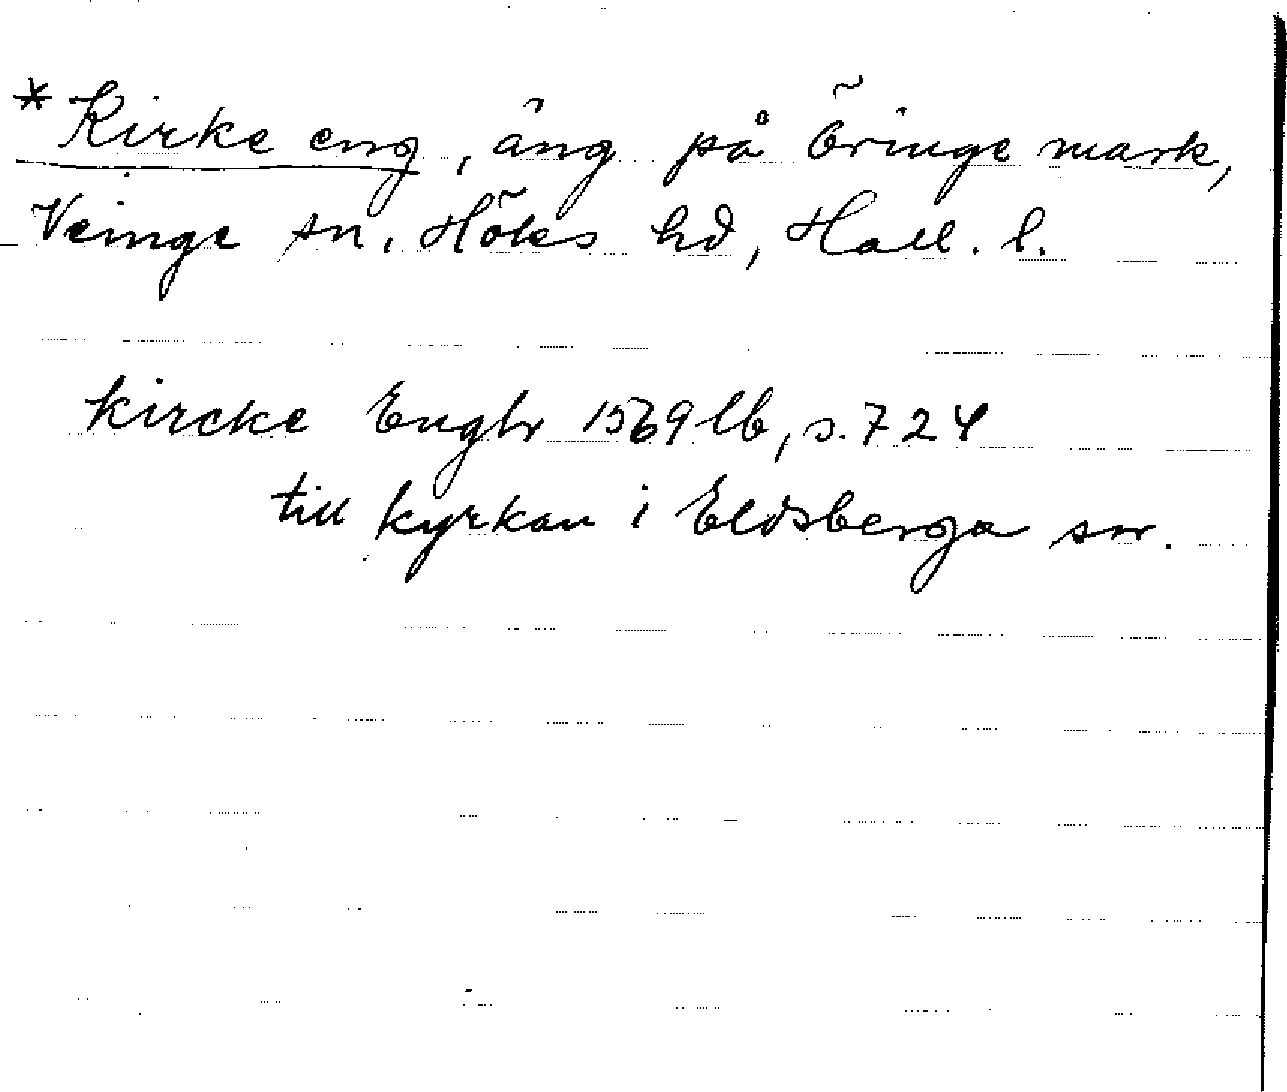 *Kirke eng, äng på Öringe mark,
Veinge sn, Höks hd, Hall. l.
kircke Engh 1569 lb, s. 724
till kyrkan i Eldsberga sn.